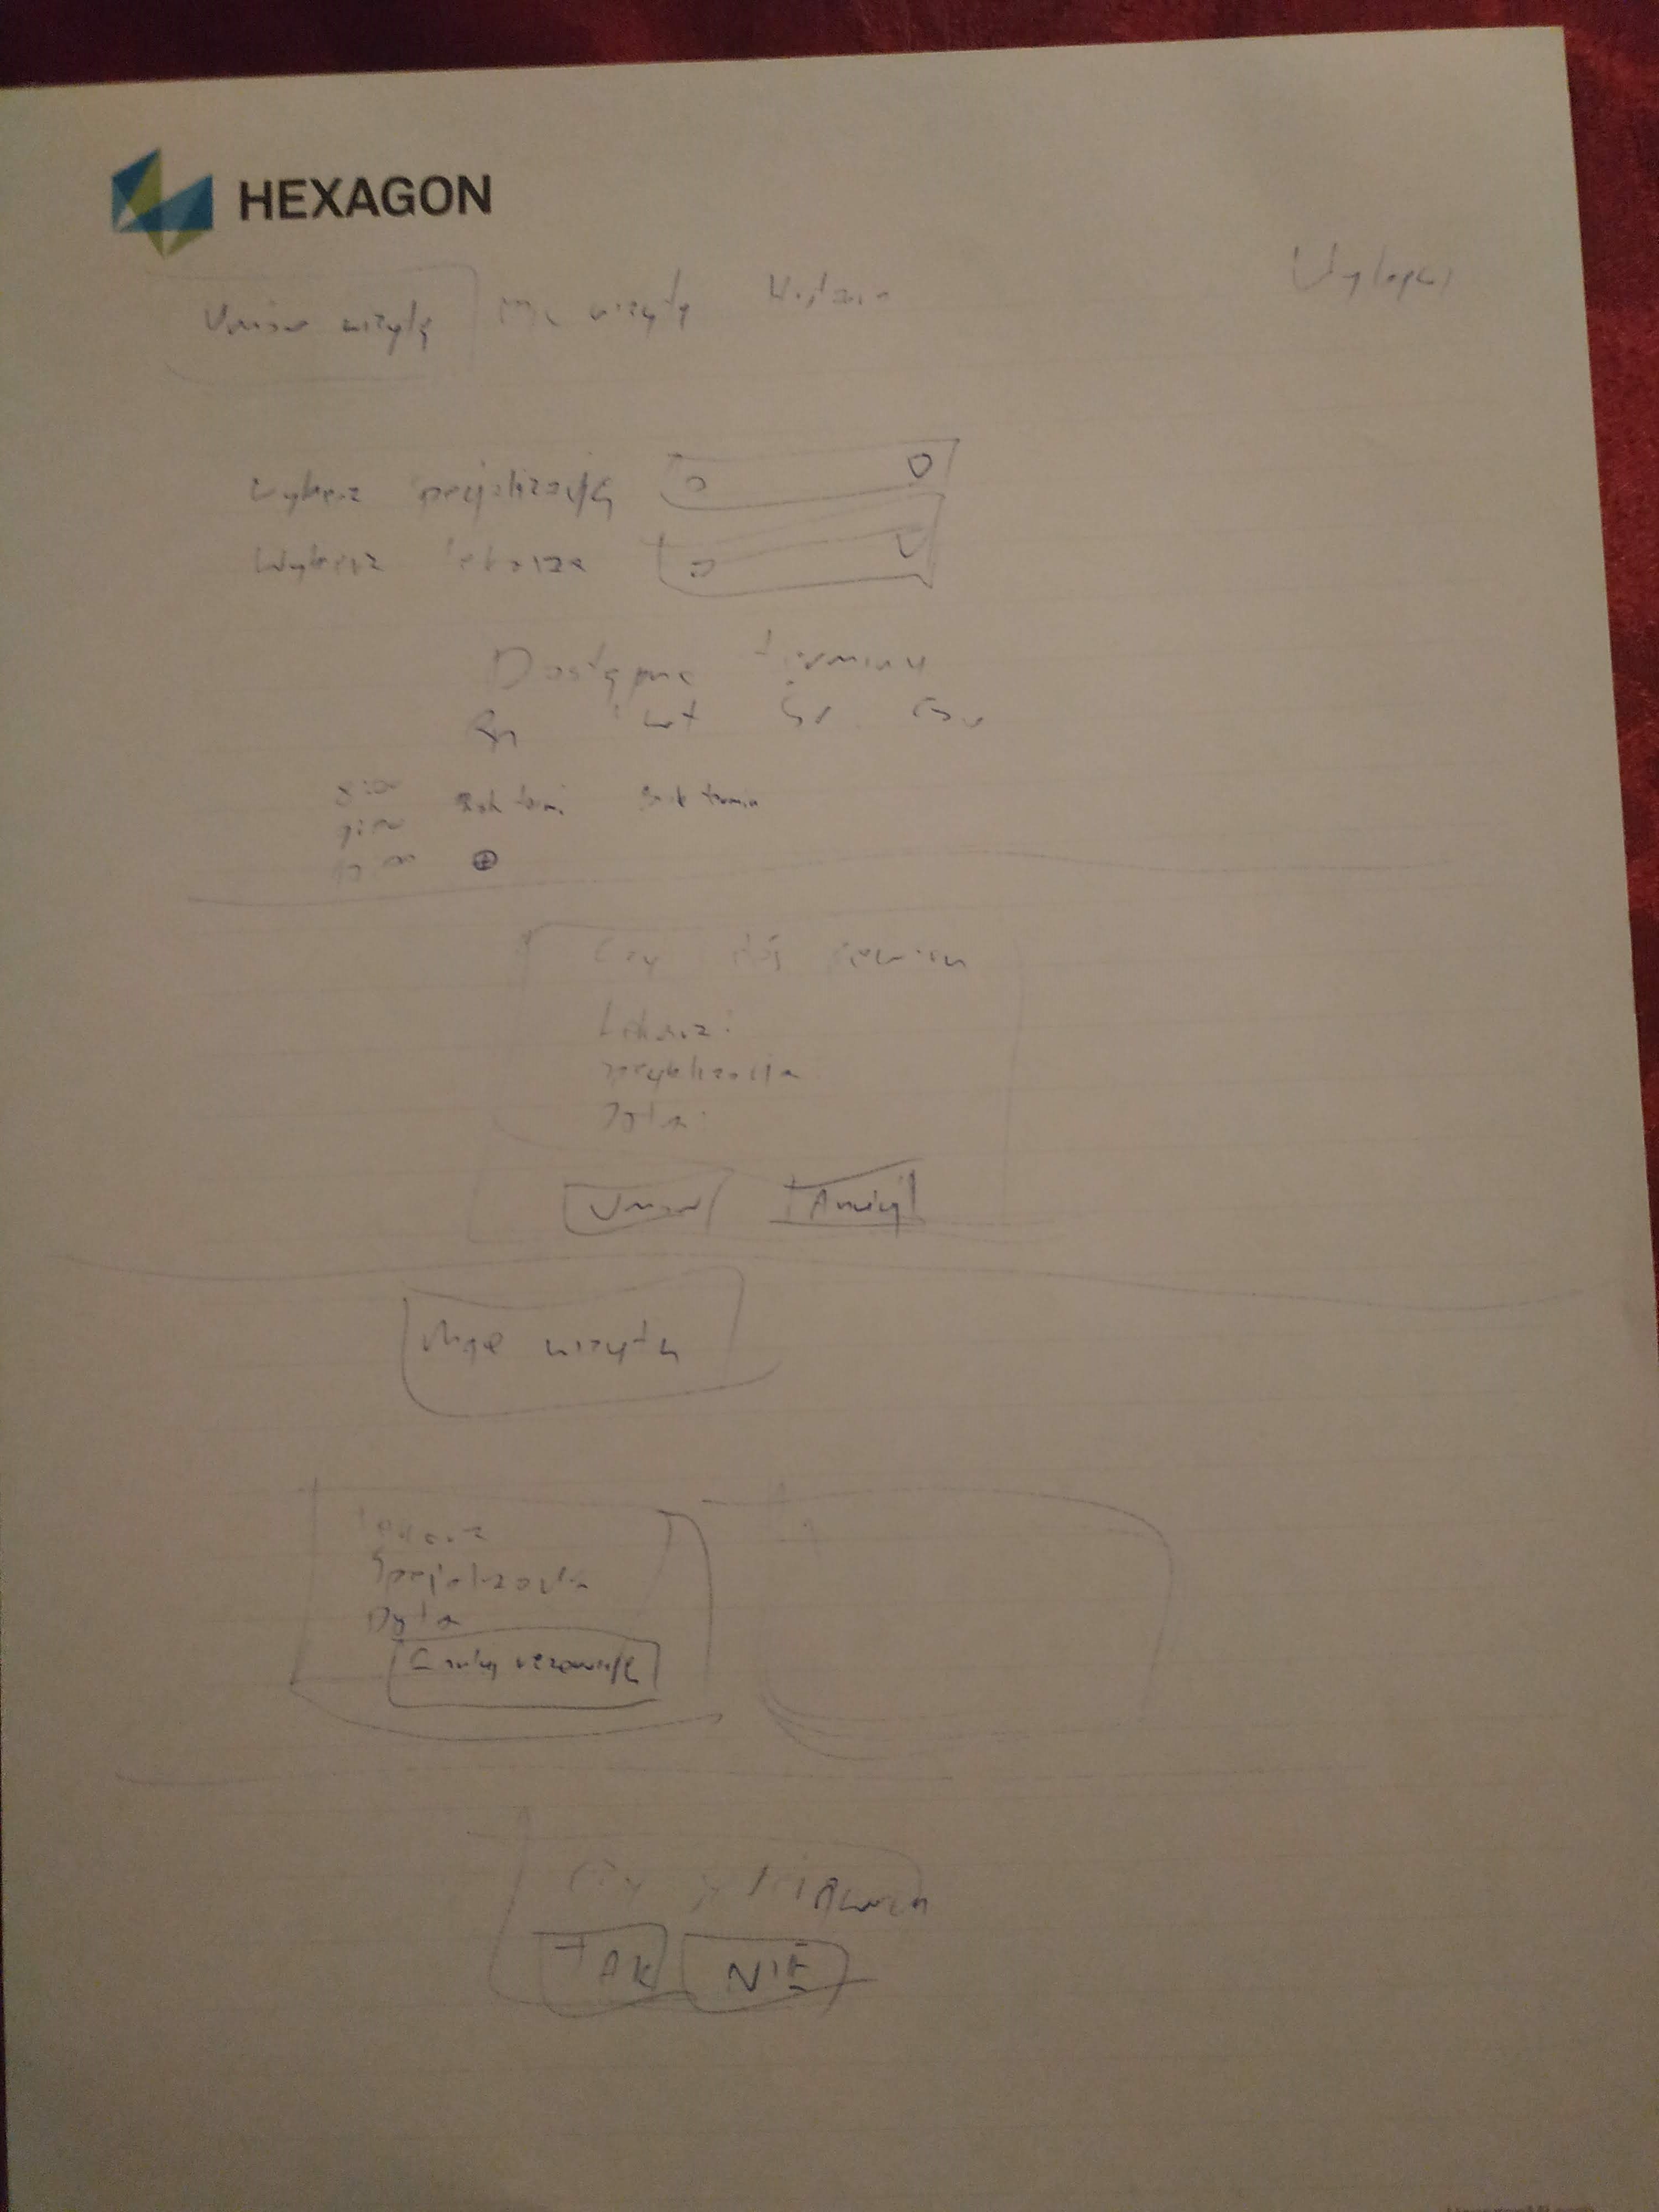 HEXAGON
Umów wizytę Moje wizyty Historia Wyloguj
Wybierz specjalizację
Wybierz lekarza
Dostępne terminy
Pn Wt Śr Czw
8:00 Brak termi Brak termin
9:00
10:00
Czy
Lekarz:
Specjalizacja
Data:
Umów Anuluj
Moje wizyty
Lekarz
Specjalizacja
Data
Anuluj rezerwację
Czy
TAK NIE